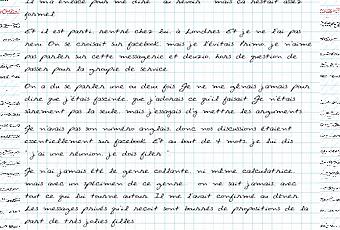 il m'a enlacé pour me dire au revoir mais ça restait assez
formel
Et il est parti, rentré chez lui, à Londres Et je ne l'ai pas
revu On se croisait sur facebook mais je l'évitais Primo je n'aime
pas parler sur cette messagerie et deuzio hors de question de
passer pour la groupie de service
On a du se parler une ou deux fois Je ne me gênais jamais pour
dire que j'étais fascinée, que j'adorais ce qu'il faisait Je n'étais
sûrement pas la seule, mais j'essayais d'y mettre les arguments
Je n'avais pas son numéro anglais donc nos discussions étaient
essentiellement sur facebook Et au but de 4 mots je lui dis
" j'ai une réunion, je dois filer "
Je n'ai jamais été le genre collante, ni même calculatrice,
mais avec un spécimen de ce genre on ne sait jamais avec
tout ce qui lui tourne autour Il me l'avait confirmé au dîner
Les messages privés qu'il reçoit sont bourrés de propositions de la
part de très jolies filles